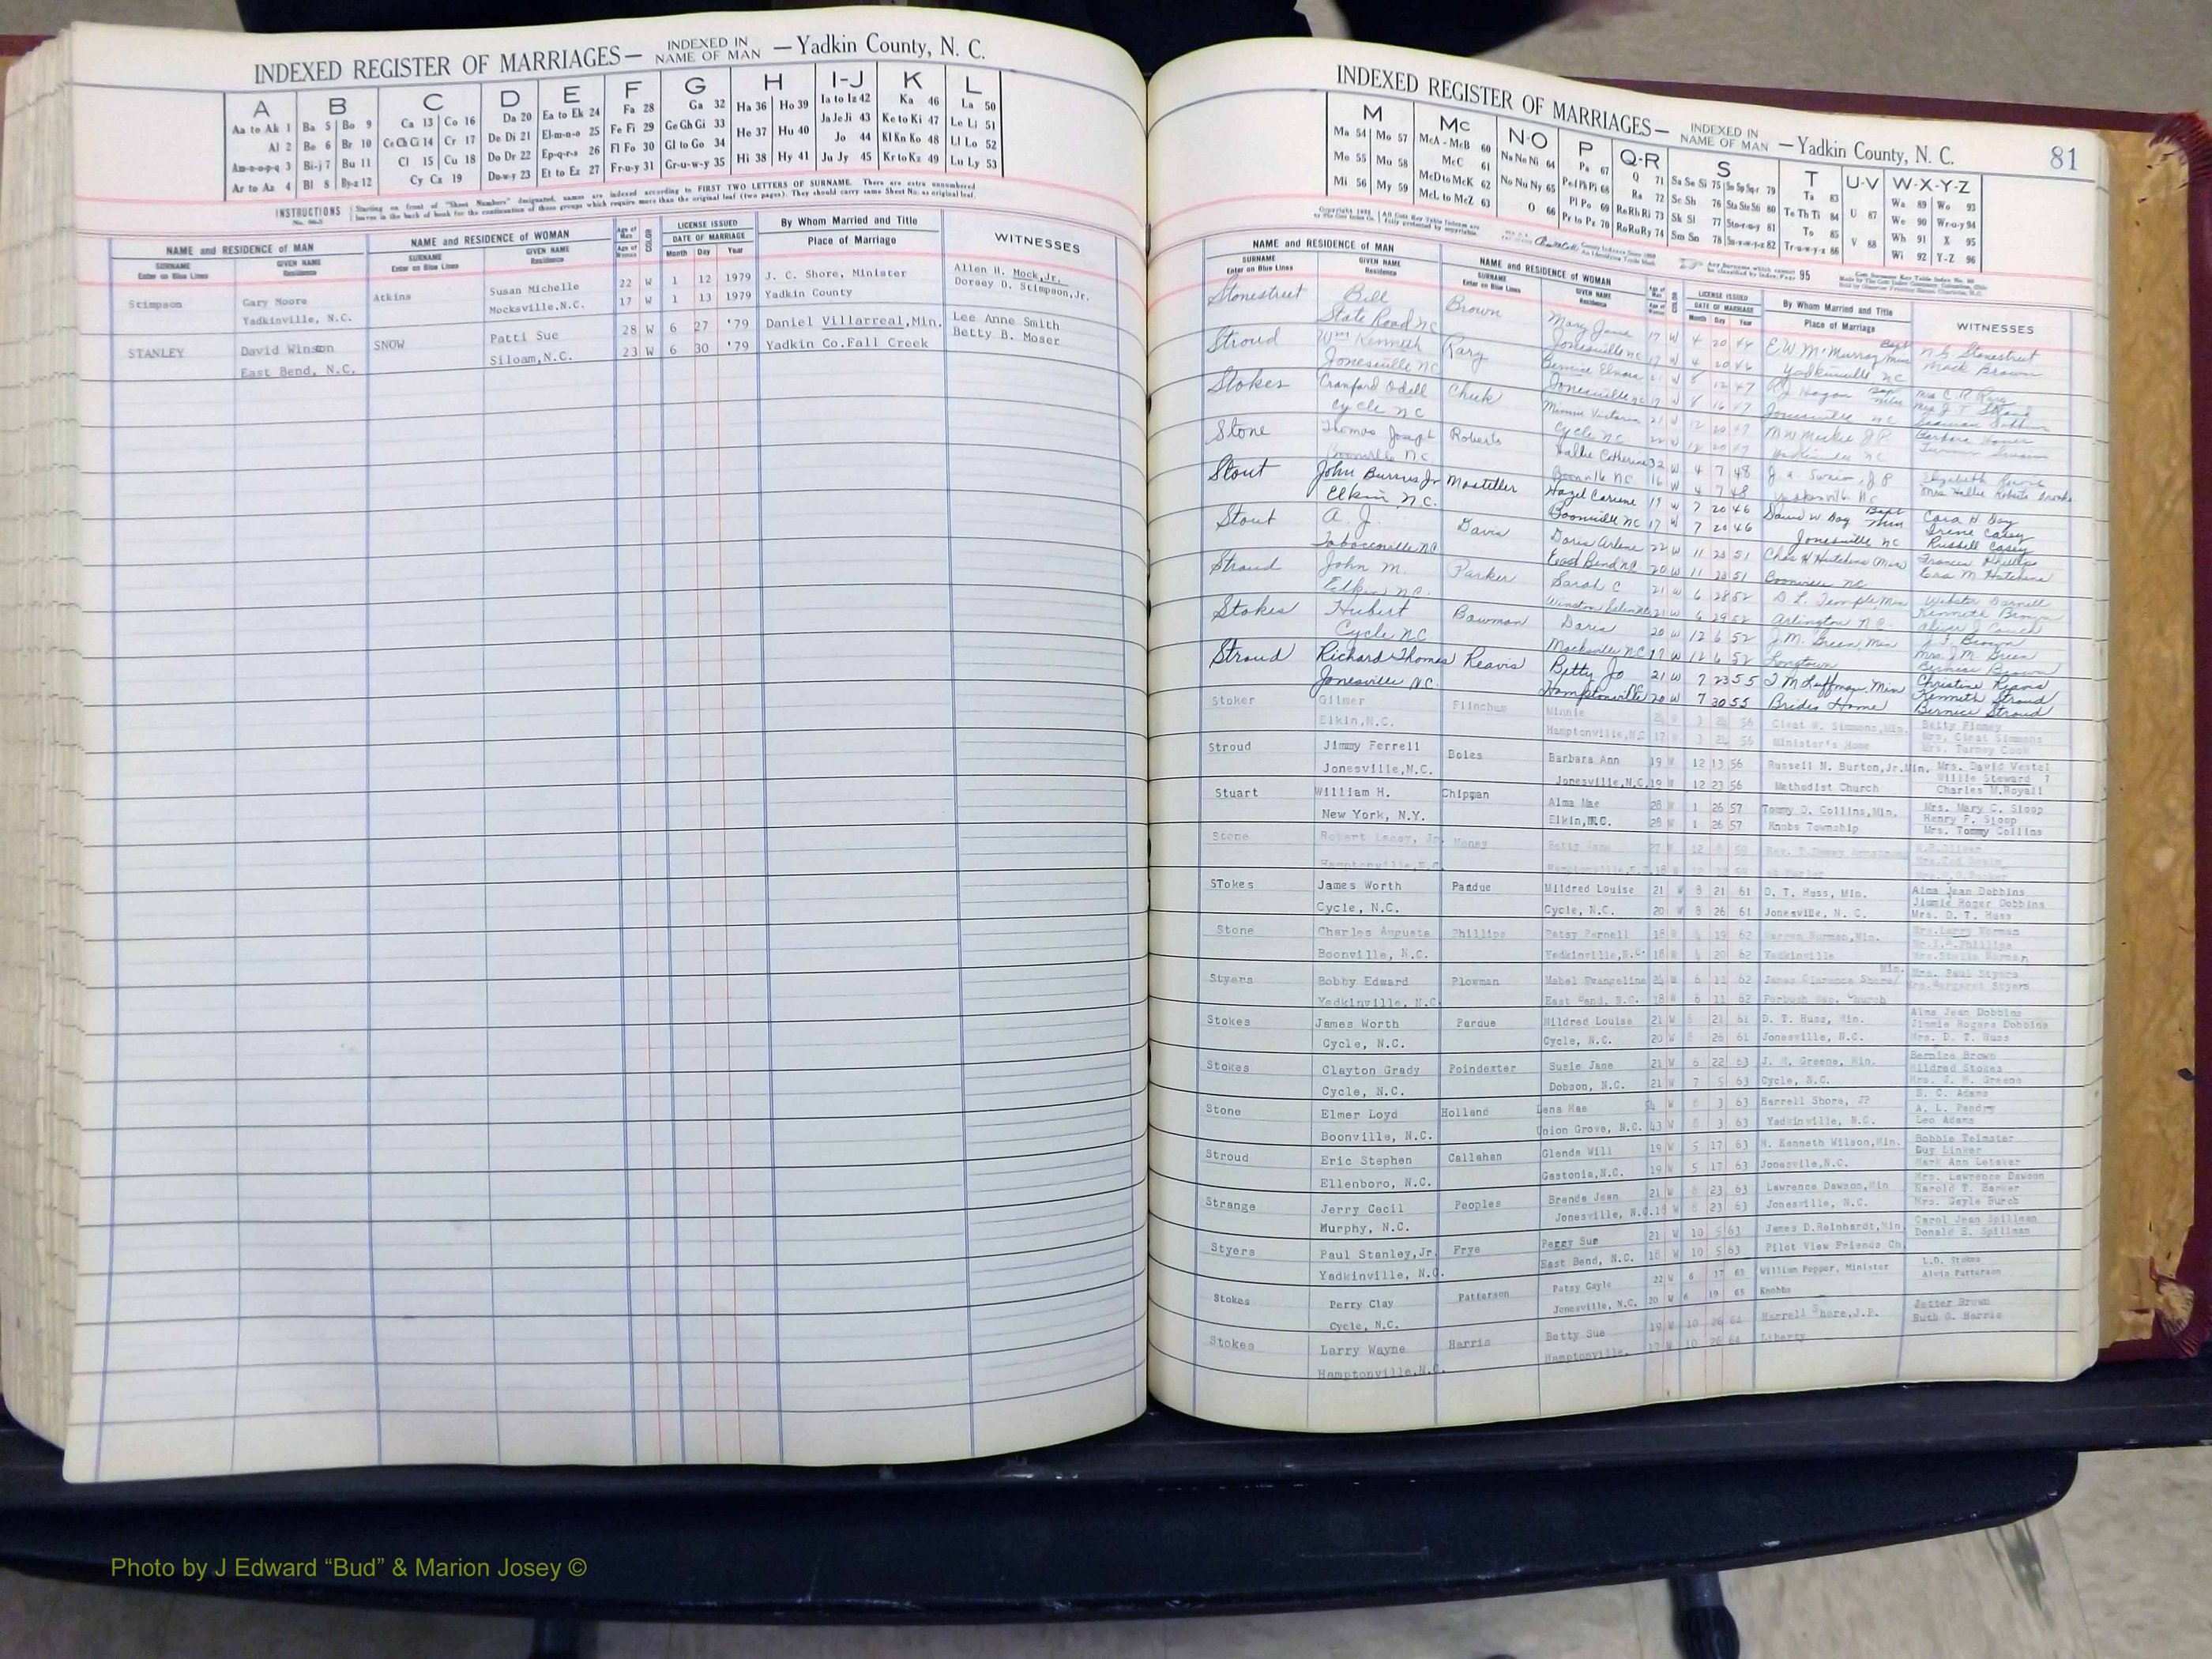 INDEXED REGISTER OF MARRIAGES— INDEXED IN NAME OF MAN —Yadkin County, N. C.
A B C D E F G H I-J K L
Aa to Ak 1 Ba 5 Bo 9 Ca 13 Co 16 Da 20 Ea to Ek 24 Fa 28 Ga 32 Ha 36 Ho 39 Ia to Iz 42 Ka 46 La 50
Al 2 Be 6 Br 10 Ce Ch Ci 14 Cr 17 De Di 21 El-m-n-o 25 Fe Fi 29 Ge Gh Gi 33 He 37 Hu 40 Ja Je Ji 43 Ke to Ki 47 Le Li 51
Am-n-o-p-q 3 Bi-j 7 Bu 11 Cl 15 Cu 18 Do Dr 22 Ep-q-r-s 26 Fl Fo 30 Gl to Go 34 Hi 38 Hy 41 Jo 44 Kl Kn Ko 48 Ll Lo 52
Ar to Az 4 Bl 8 By-z 12 Cy Cz 19 Du-w-y 23 Et to Ez 27 Fr-u-y 31 Gr-u-w-y 35 Ju Jy 45 Kr to Kz 49 Lu Ly 53
INSTRUCTIONS Starting on front of "Sheet Numbers" designated, names are indexed according to FIRST TWO LETTERS OF SURNAME. There are extra unnumbered
leaves in the back of book for the continuation of those groups which require more than the original leaf (two pages). They should carry same Sheet No. as original leaf.
NAME and RESIDENCE OF MAN NAME and RESIDENCE OF WOMAN Age of Man Age of Woman COLOR LICENSE ISSUED DATE OF MARRIAGE By Whom Married and Title Place of Marriage WITNESSES
SURNAME Enter on Blue Lines GIVEN NAME Residence SURNAME Enter on Blue Lines GIVEN NAME Residence Month Day Year
Stimpson Gary Moore Atkins Susan Michelle 22 W 1 12 1979 J. C. Shore, Minister Allen H. Mock,Jr.
Yadkinville, N.C. Mocksville,N.C. 17 W 1 13 1979 Yadkin County Dorsey D. Stimpson,Jr.
STANLEY David Winston SNOW Patti Sue 28 W 6 27 '79 Daniel Villarreal,Min. Lee Anne Smith
East Bend, N.C. Siloam,N.C. 23 W 6 30 '79 Yadkin Co.Fall Creek Betty B. Moser
INDEXED REGISTER OF MARRIAGES— INDEXED IN NAME OF MAN —Yadkin County, N. C. 81
M Mc N-O P Q-R S T U-V W-X-Y-Z
Ma 54 Mo 57 McA - McB 60 Na Ne Ni 64 Pa 67 Q 71 Sa Se Si 75 So Sp Sq-r 79 Ta 83 U 87 Wa 89 Wo 93
Me 55 Mu 58 McC 61 No Nu Ny 65 Pe Pf Ph Pi 68 Ra 72 Sc Sh 76 Sta Ste Sti 80 Te Th Ti 84 V 88 We 90 Wr-u-y 94
Mi 56 My 59 McD to McK 62 O 66 Pl Po 69 Re Rh Ri 73 Sk Sl 77 Sto-r-u-y 81 To 85 Wh 91 X 95
McL to McZ 63 Pr to Pz 70 Ro Ru Ry 74 Sm Sn 78 Su-v-w-y-z 82 Tr-u-w-y-z 86 Wi 92 Y-Z 96
NAME and RESIDENCE OF MAN NAME and RESIDENCE OF WOMAN LICENSE ISSUED DATE OF MARRIAGE By Whom Married and Title Place of Marriage WITNESSES
SURNAME Enter on Blue Lines GIVEN NAME Residence SURNAME Enter on Blue Lines GIVEN NAME Residence Month Day Year
Stonestreet Bill Brown Mary Jane 17 W 4 20 E W McMurray Bapt Min N.G. Stonestreet
State Road NC Jonesville NC 17 W 4 20 46 Yadkinville NC Mack Brown
Stroud Wm Kenneth Rary Bernice Elnora 21 W 8 12 47 Hagan Mrs C. R Rary
Jonesville NC Jonesville NC 17 W 8 16 47 Jonesville NC Mrs J. T. Stroud
Stokes Cranford Odell Cheek Minnie Victoria 21 W 12 20 47 M W Mackie J P
Cycle NC Cycle NC 22 W 12 20 47 Yadkinville NC
Stone Thomas Joseph Roberts Hallie Catherine 32 W 4 7 48 J. A. Swaim, J P Elizabeth
Boonville NC Boonville NC 16 W 4 7 48 Yadkinville NC Mrs Hallie Roberts Brooks
Stout John Burrus Jr Mosteller Hazel Carlene 19 W 7 20 46 David W Day Bapt Min Cora H Day
Elkin, N.C. Boonville NC 17 W 7 20 46 Jonesville NC Irene Casey
Russell Casey
Stout A. J. Davis Doris Arlene 22 W 11 23 51 Chas H Hutchens Min Francis Phillips
Tobaccoville NC East Bend NC 20 W 11 23 51 Boonville NC Era M Hutchens
Stroud John M. Parker Sarah C 21 W 6 28 52 D. L. Temple, Min Webster Darnell
Elkin N.C. Winston Salem NC 21 W 6 29 52 Arlington N.C. Kenneth Brown
Oliver J Couch
Stokes Hubert Bowman Doris 20 W 12 6 52 J. M. Green, Min J. F. Brown
Cycle NC Mocksville NC 17 W 12 6 52 Longtown Mrs. J.M. Green
Bernice Brown
Stroud Richard Thomas Reavis Betty Jo 21 W 7 23 55 T M Luffman, Min Christine Reavis
Jonesville N.C. Hamptonville 20 W 7 30 55 Brides Home Kenneth Stroud
Bernice Stroud
Stoker Gilmer Flinchum Minnie W 3 56 Cleat W. Simmons,Min. Betty Finney
Elkin,N.C. Hamptonville,N.C 17 W 3 56 Minister's Home Mrs. Cleat Simmons
Mrs. Turney Cook
Stroud Jimmy Ferrell Boles Barbara Ann 19 W 12 13 56 Russell N. Burton,Jr.Min. Mrs. David Vestal
Jonesville,N.C. Jonesville,N.C. 19 W 12 23 56 Methodist Church Willie Steward
Charles M.Royall
Stuart William H. Chipman Alma Mae 28 W 1 26 57 Tommy O. Collins,Min. Mrs. Mary C. Sloop
New York, N.Y. Elkin,N.C. 28 W 1 26 57 Knobs Township Henry F. Sloop
Mrs. Tommy Collins
Stone Robert Lacey, Jr. Money Betty Jane 27 W 12 59
Hamptonville,N.C Hamptonville,N.C. 18 W
STokes James Worth Pardue Mildred Louise 21 W 8 21 61 D. T. Huss, Min. Alma Jean Dobbins
Cycle, N.C. Cycle, N.C. 20 W 8 26 61 Jonesville, N. C. Jimmie Roger Dobbins
Mrs. D. T. Huss
Stone Charles Auguste Phillips Patsy Pernell 18 W 4 19 62 Warren Norman,Min. Mrs.Larry Norman
Boonville, N.C. Yadkinville,N.C. 18 W 4 20 62 Yadkinville Phillips
Mrs.Stella Norman
Styers Bobby Edward Plowman Mabel Evangeline 24 W 6 11 62 James Clarence Shore/ Min. Mrs. Paul Styers
Yadkinville, N.C. East Bend, N.C. 18 W 6 11 62 Forbush Bap. Church Mrs.Margaret Styers
Stokes James Worth Pardue Mildred Louise 21 W 8 21 61 D. T. Huss, Min. Alma Jean Dobbins
Cycle, N.C. Cycle, N.C. 20 W 8 26 61 Jonesville, N.C. Jimmie Rogers Dobbins
Mrs. D. T. Huss
Stokes Clayton Grady Poindexter Susie Jane 21 W 6 22 63 J. M. Greene, Min. Bernice Brown
Cycle, N.C. Dobson, N.C. 21 W 7 5 63 Cycle, N.C. Mildred Stokes
Mrs. J. M. Greene
Stone Elmer Loyd Holland Lena Mae 54 W 8 3 63 Harrell Shore, JP H. C. Adams
Boonville, N.C. Union Grove, N.C. 43 W 8 3 63 Yadkinville, N.C. A. L. Pendry
Leo Adams
Stroud Eric Stephen Callahan Glenda Will 19 W 5 17 63 M. Kenneth Wilson,Min. Bobbie Tolmster
Ellenboro, N.C. Gastonia,N.C. 19 W 5 17 63 Jonesvile,N.C. Guy Linker
Mark Ann Letsker
Strange Jerry Cecil Peoples Brenda Jean 21 W 8 23 63 Lawrence Dawson,Min Mrs. Lawrence Dawson
Murphy, N.C. Jonesville, N.C. 18 W 8 23 63 Jonesville, N.C. Harold T. Barker
Mrs. Gayle Burch
Styers Paul Stanley,Jr. Frye Peggy Sue 21 W 10 5 63 James D.Reinhardt,Min. Carol Jean Spillman
Yadkinville, N.C. East Bend, N.C. 18 W 10 5 63 Pilot View Friends Ch. Donald E. Spillman
Stokes Perry Clay Patterson Patsy Gayle 22 W 6 17 65 William Pepper, Minister L.D. Stokes
Cycle, N.C. Jonesville, N.C. 20 W 6 19 65 Knobbs Alvin Patterson
Stokes Larry Wayne Harris Betty Sue 19 W 10 26 64 Harrell Shore,J.P. Jetter Brown
Hamptonville,N.C. Hamptonville. 17 W 10 26 64 Liberty Ruth G. Harris
Photo by J Edward “Bud” & Marion Josey ©